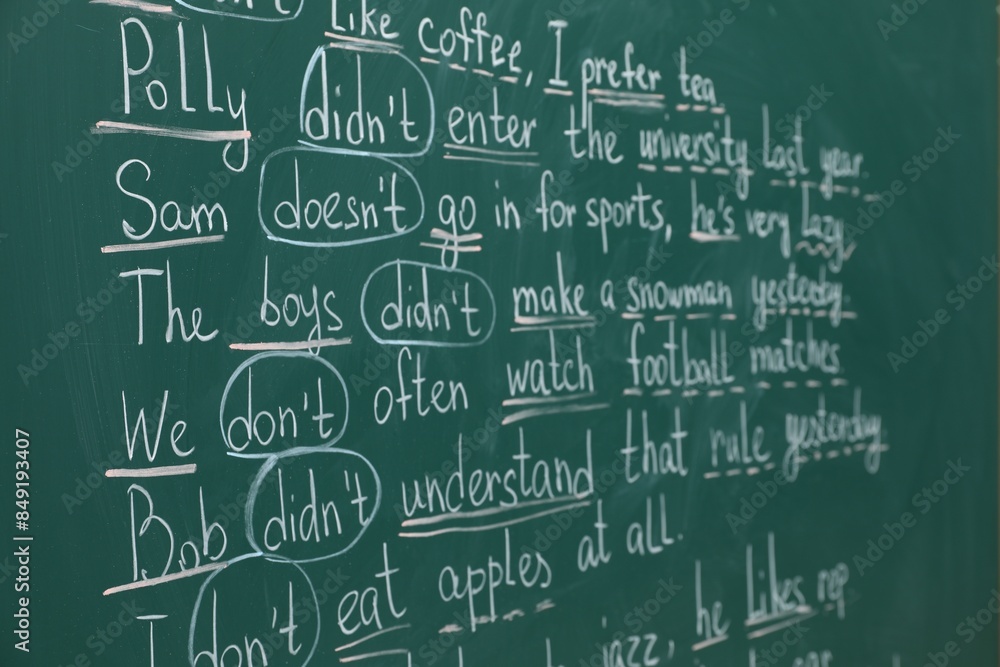 like coffee, I prefer tea
Polly didn't enter the university last year.
Sam doesn't go in for sports, he's very lazy.
The boys didn't make a snowman yesterday.
We don't often watch football matches.
Bob didn't understand that rule yesterday.
I don't eat apples at all.
jazz, he likes rap
Adobe Stock | #849193407